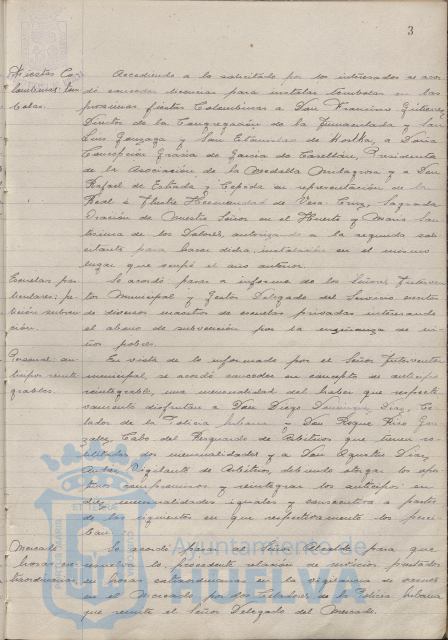 3
Fiestas Co-
lombinas: Tóm-
bolas.
Accediendo a lo solicitado por los interesados se acor-
dó conceder licencias para instalar tómbolas en las
próximas fiestas Colombinas a Don Francisco Gutiérrez,
Director de la Congregación de la Inmaculada y San
Luis Gonzaga y San Estanislao de Kostka, a Doña
Concepción García de García de Castellón, Presidenta
de la Asociación de la Medalla Milagrosa y a Don
Rafael de Estrada y Cepeda en representación de la
Real é Ilustre Hermandad de Vera-Cruz, Sagrada
Oración de Nuestro Señor en el Huerto y María San-
tísima de los Dolores, autorizando a la segunda soli-
citante para hacer dicha instalación en el mismo
lugar que ocupó el año anterior.
Escuelas par-
ticulares: pe-
tición subven-
ción.
Se acordó pasar a informe de los Señores Interven-
tor Municipal y Gestor Delegado del Servicio escritos
de diversos maestros de escuelas privadas interesando
el abono de subvención por la enseñanza de ni-
ños pobres.
Personal: an-
ticipos reinte-
grables.
En vista de lo informado por el Señor Interventor
municipal, se acordó conceder en concepto de anticipo
reintegrable, una mensualidad del haber que respecti-
vamente disfrutan a Don Diego Domínguez Díaz, Ce-
lador de la Policía Urbana y Don Roque Rico Gon-
zález, Cabo del Resguardo de Arbitrios que tienen so-
licitadas dos mensualidades y a Don Agustín Díaz
Vigilante de Arbitrios, debiendo otorgar los opor-
tunos compromisos y reintegrar los anticipos en
diez mensualidades iguales y consecutivas a partir
de las siguientes en que respectivamente los perci-
ban.
Mercado:
horas ex-
traordinarias
Se acordó pasar al Señor Alcalde para que
resuelva lo procedente relación de servicios prestados
en horas extraordinarias en la vigilancia de
en el Mercado por los Celadores de la Policía Urbana
que remite el Señor Delegado del Mercado.
Ayuntamiento de
HUELVA